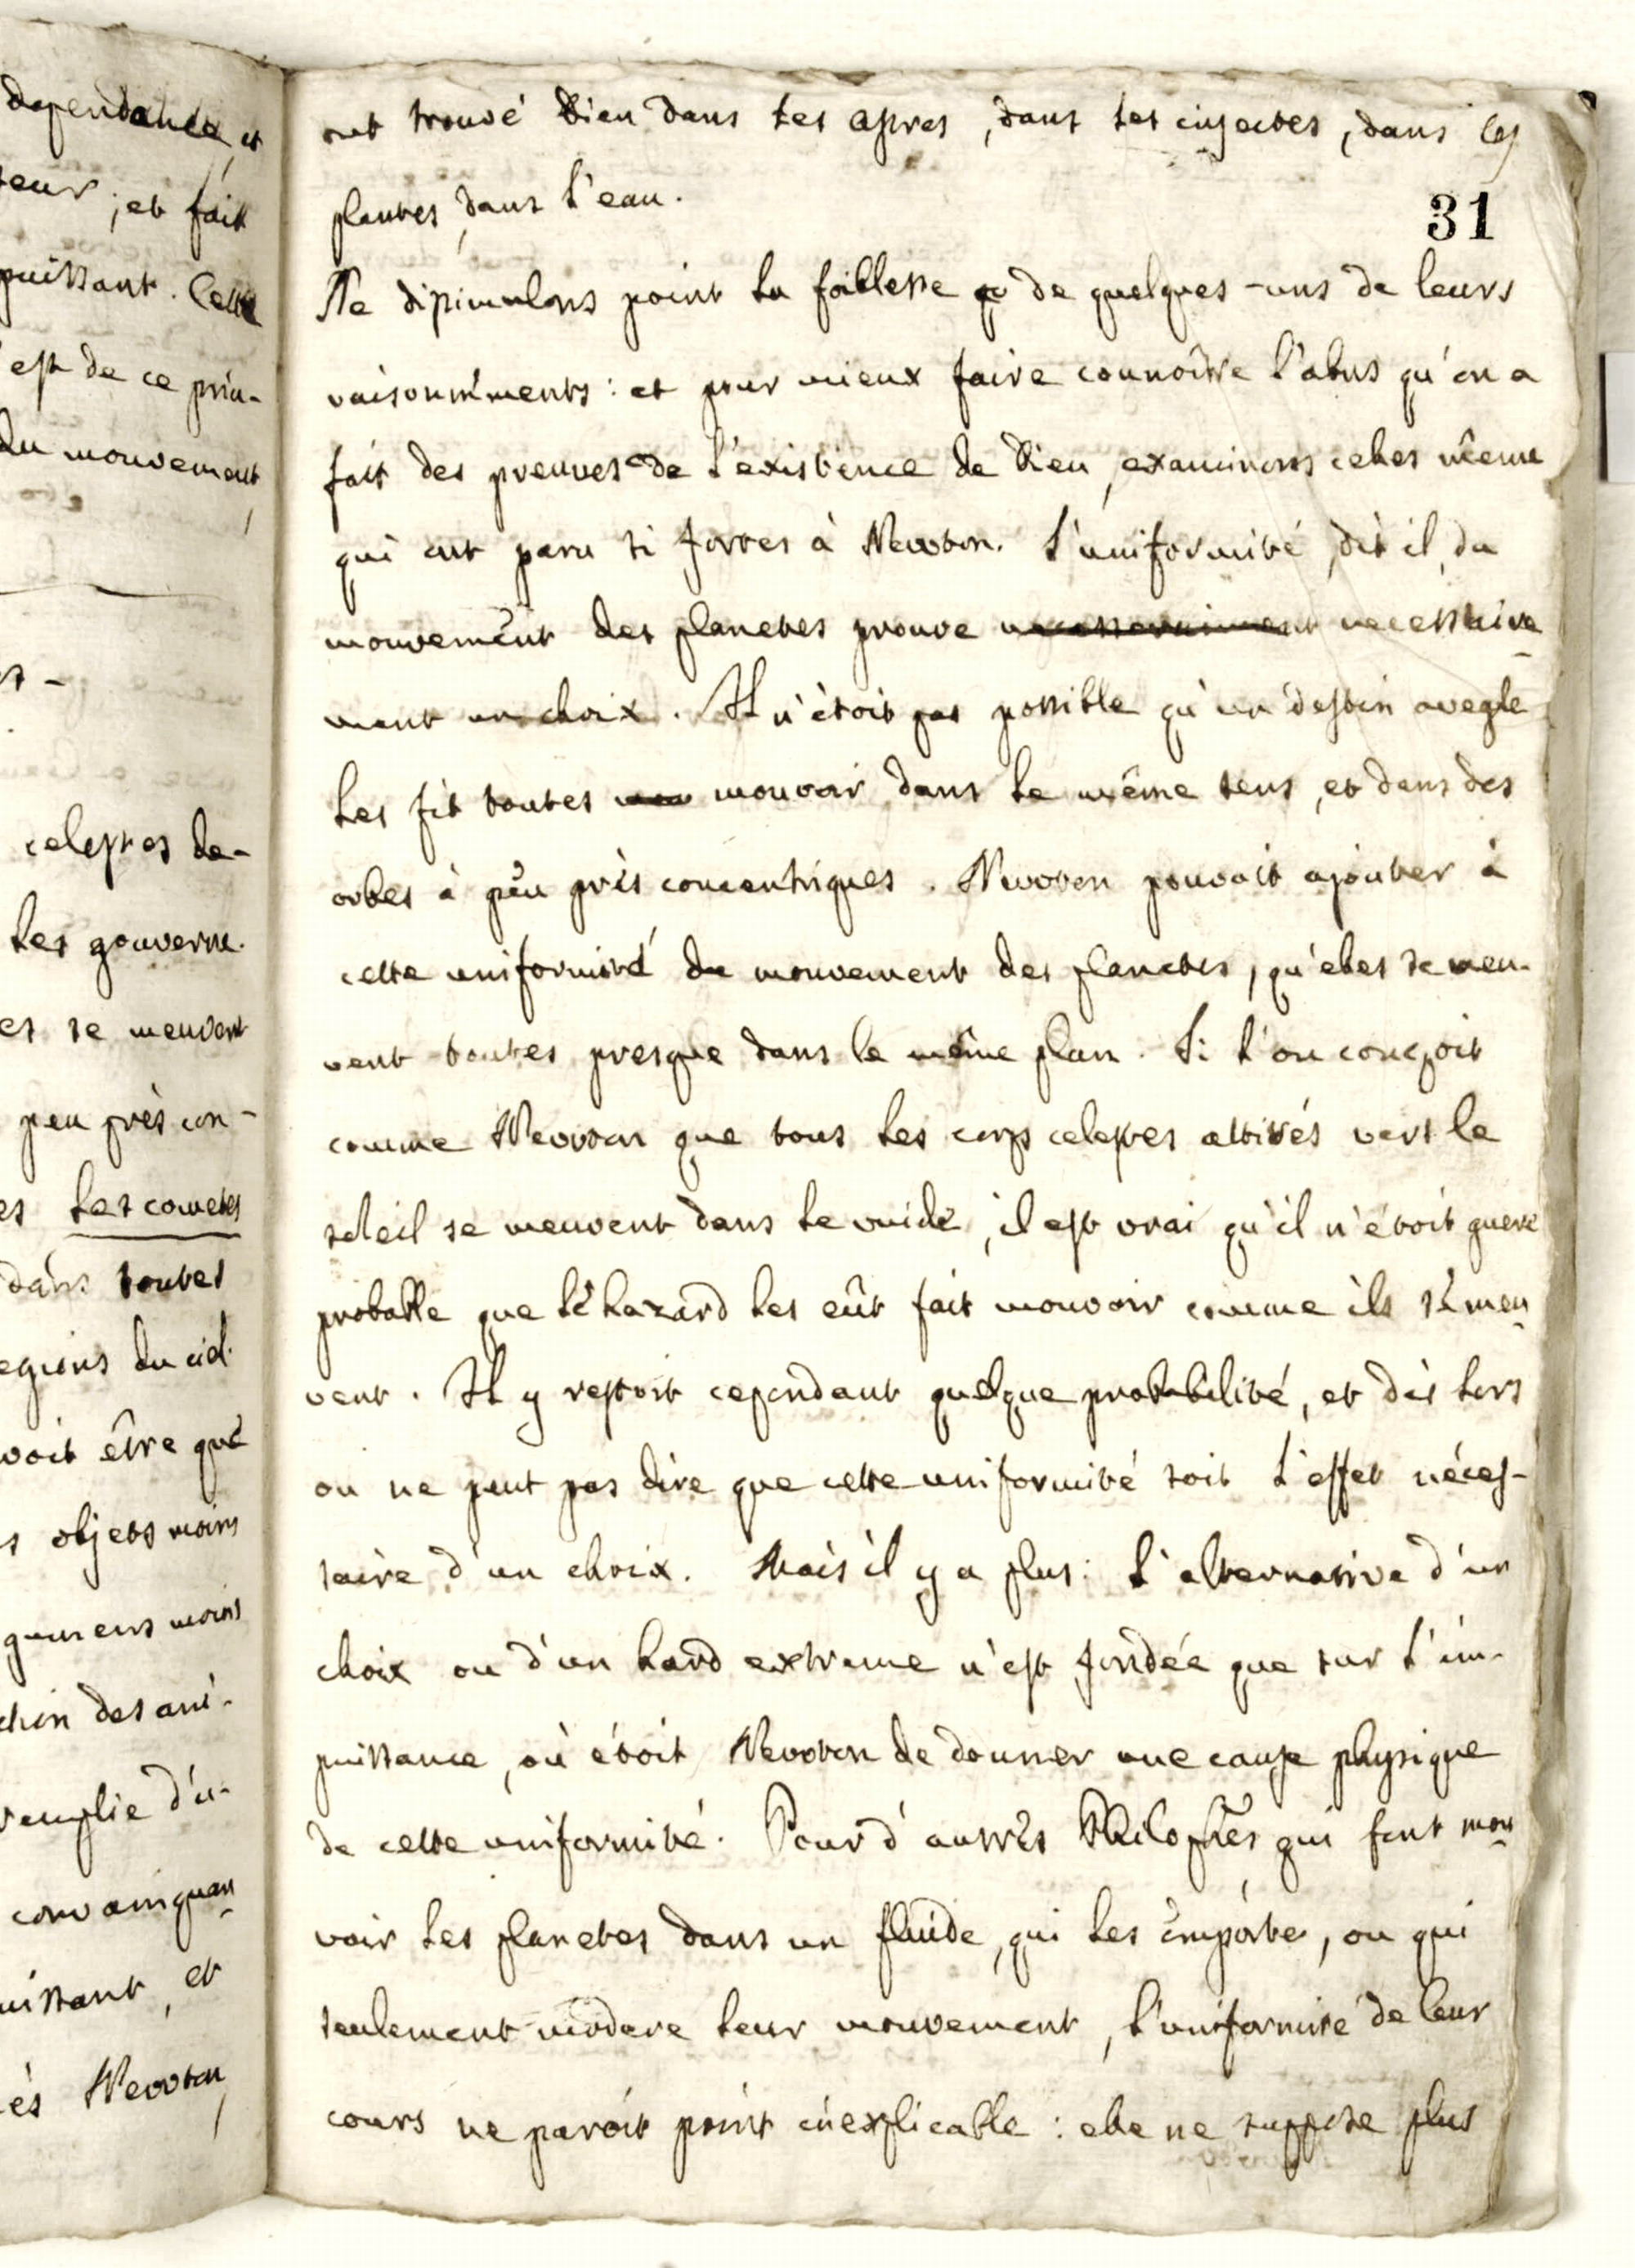 dependance, et
teur ; et fait
puissant. Cette
est de ce prin-
du mouvement,
celestes de-
les gouverne.
es se meuvent
peu près con-
es les cometes
dans toutes
egions du ciel.
voit être que
s objets moins
moins
des ani-
remplie d'u-
convainquan
uissant, et
és Newton,
ont trouvé Dieu dans les astres, dans les insectes, dans les
plantes, dans l'eau.
31
Ne dissimulons point la foiblesse de quelques-uns de leurs
raisonnements : et pour mieux faire connoître l'abus qu'on a
fait des preuves de l'existence de Dieu, examinons celles même
qui ont paru si fortes à Newton. L'uniformité, dit il, du
mouvement des planetes prouve necessairement necessaire-
ment un choix. Il n'étoit pas possible qu'un destin avegle
les fit toutes mouvoir dans le même sens, et dans des
orbes à peu près concentriques. Newton pouvoit ajouter à
cette uniformité du mouvement des planetes, qu'elles se meu-
vent toutes presque dans le même plan. Si l'on conçoit
comme Newton que tous les corps celestes attirés vers le
soleil se meuvent dans le vuide, il est vrai qu'il n'étoit guere
probable que le hazard les eût fait mouvoir comme ils se meu-
vent. Il y restoit cependant quelque probabilité, et dès lors
on ne peut pas dire que cette uniformité soit l'effet néces-
saire d'un choix. Mais il y a plus : L'alternative d'un
choix ou d'un hard extreme n'est fondée que sur l'im-
puissance, où étoit Newton de donner une cause physique
de cette uniformité. Pour d'autres Philophes qui font mou-
voir les planetes dans un fluide, qui les emporte, ou qui
seulement modere leur mouvement, l'uniformité de leur
cours ne paroit point inexplicable : elle ne suppose plus